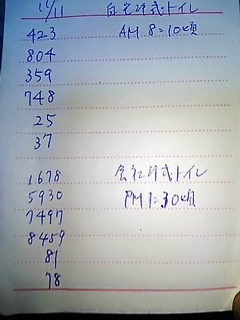 11/11 自宅洋式トイレ
423 AM 8:10頃
804
359
748
25
37
1678 会社洋式トイレ
5930 PM 1:30頃
7497
8459
81
78